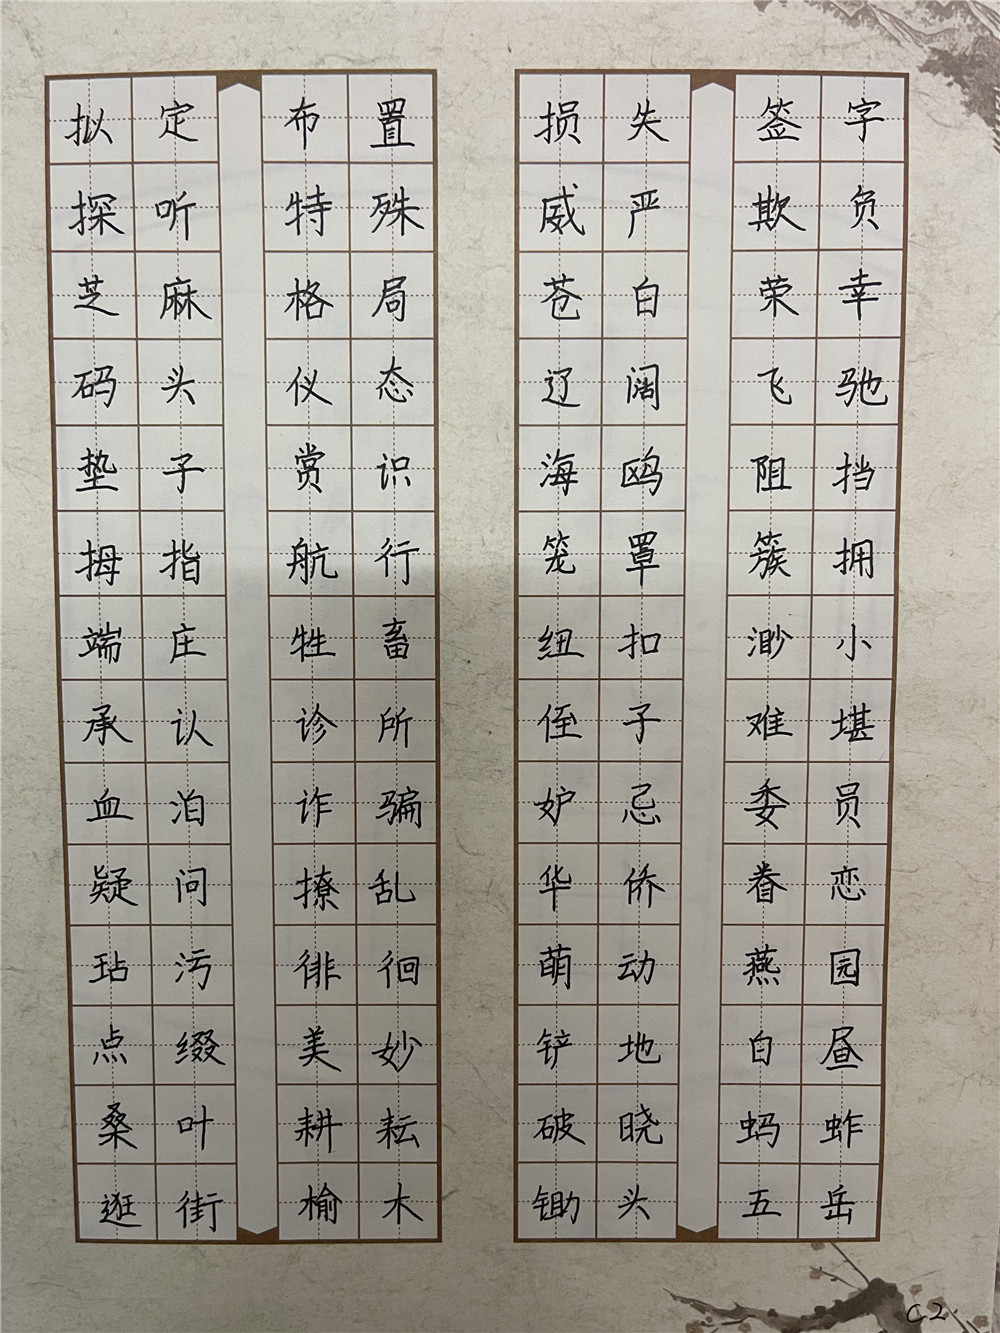 拟定 布置 损失 签字
探听 特殊 威严 欺负
芝麻 格局 苍白 荣幸
码头 仪态 辽阔 飞驰
垫子 赏识 海鸥 阻挡
拇指 航行 笼罩 簇拥
端庄 牲畜 纽扣 渺小
承认 诊所 侄子 难堪
血泊 诈骗 妒忌 委员
疑问 撩乱 华侨 眷恋
玷污 徘徊 萌动 燕园
点缀 美妙 铲地 白昼
桑叶 耕耘 破晓 蚂蚱
逛街 榆木 锄头 五岳
C2